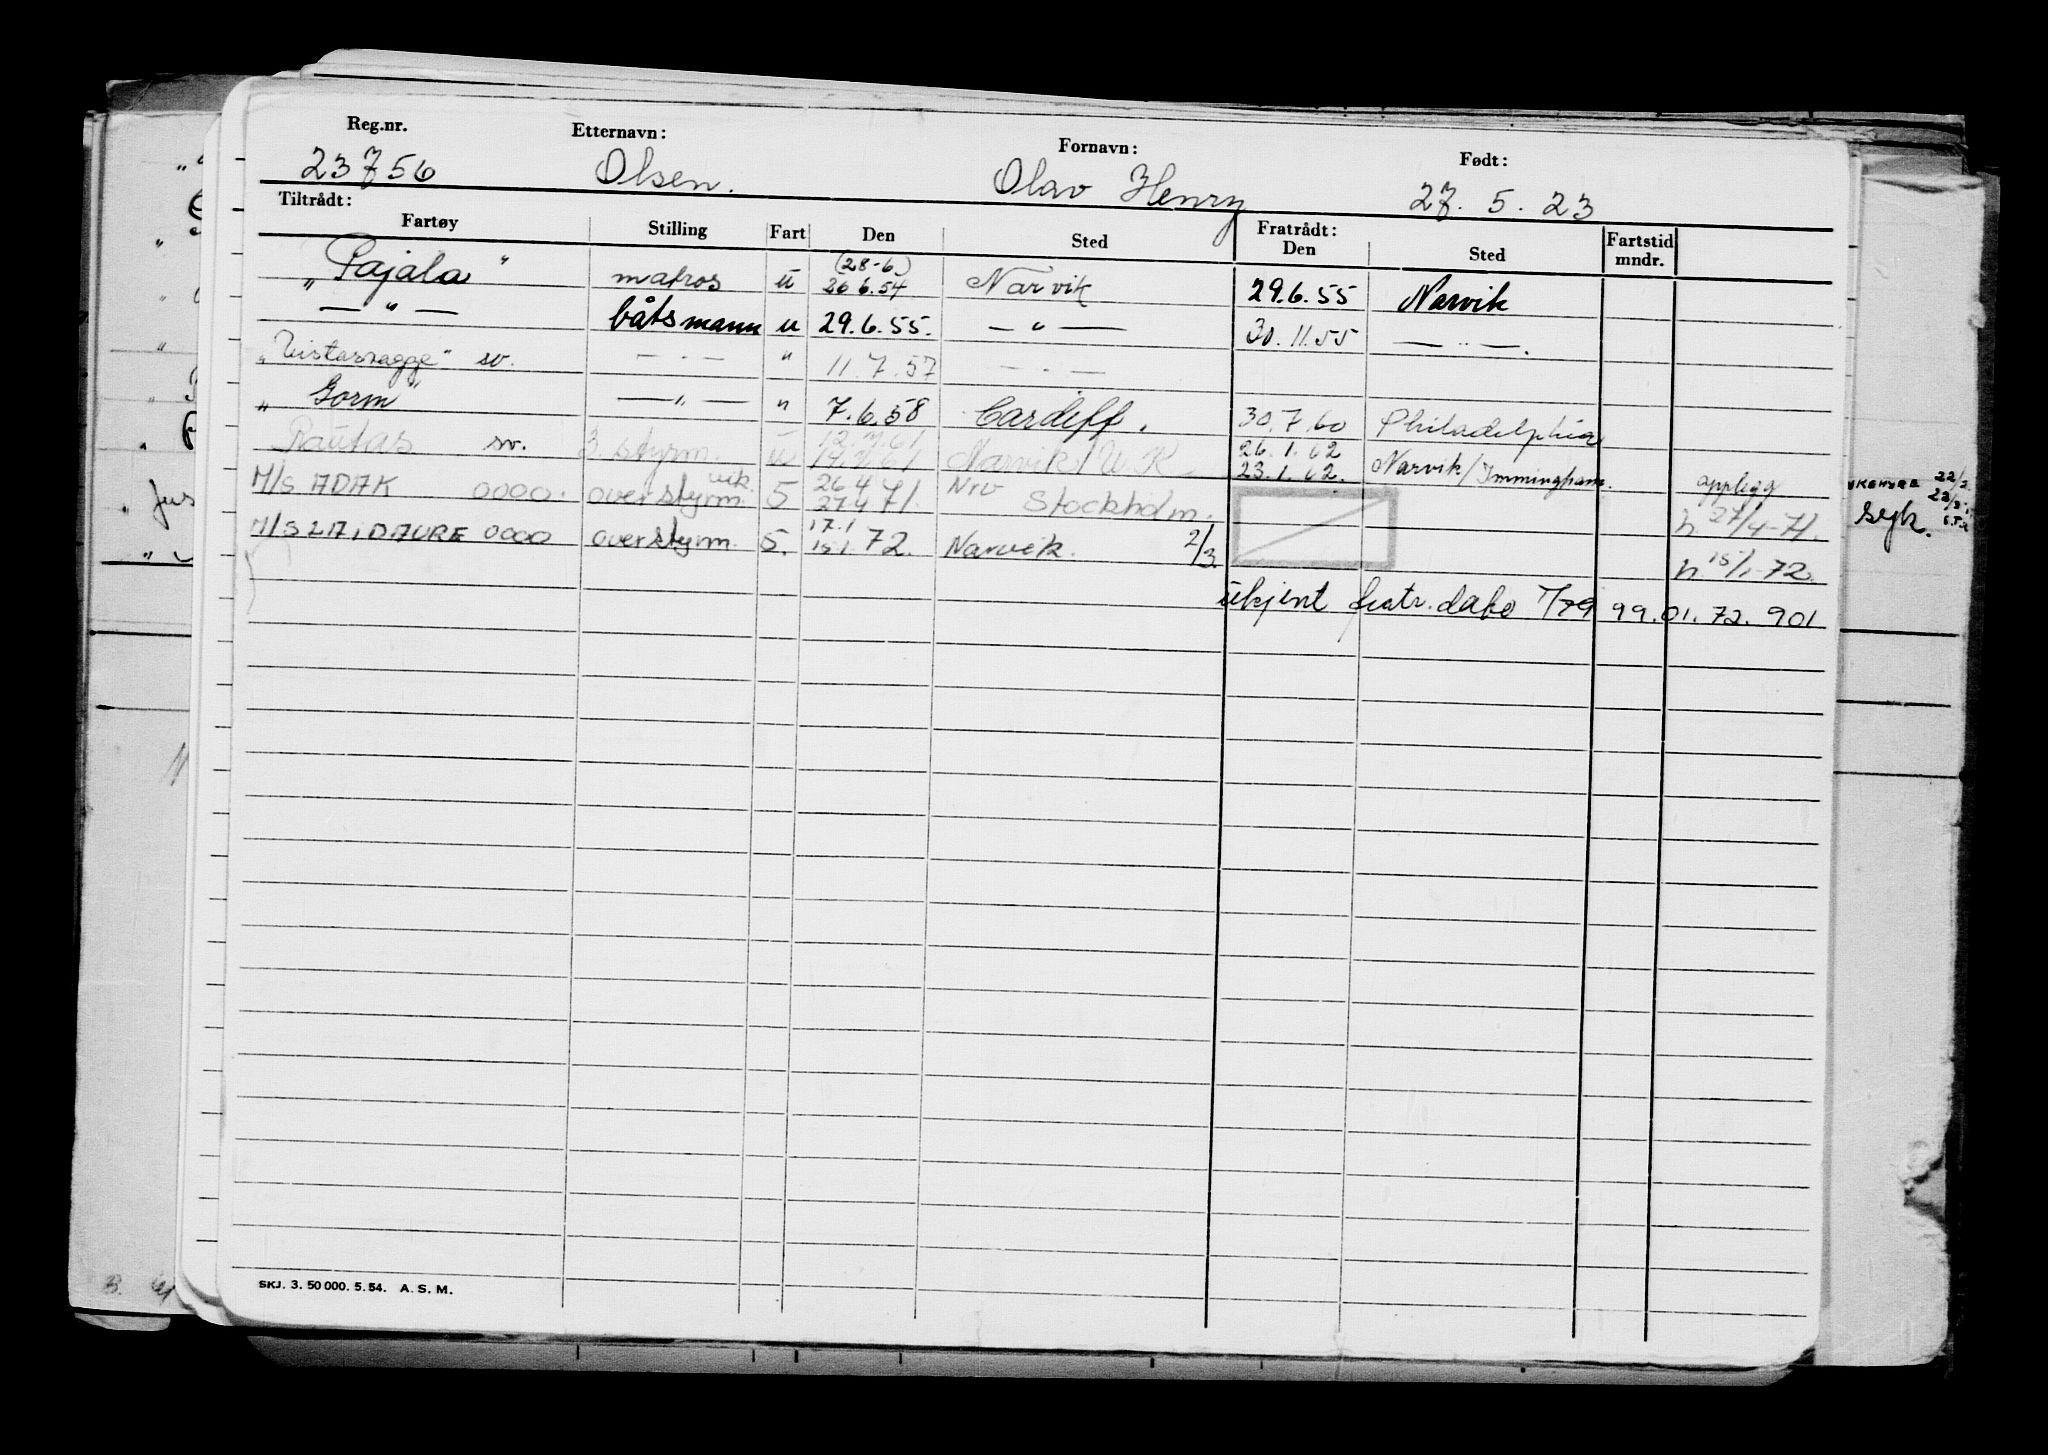 Reg.nr. Etternavn: Fornavn: Født:
23756 Olsen. Olav Henry 27. 5. 23
Tiltrådt: Fratrådt:
Fartøy Stilling Fart Den Sted Den Sted Fartstid mndr.
(28-6)
„Pajala" matros u 26 6.54 Narvik 29.6.55 Narvik
— " — båtsmann u 29.6.55. — " — 30.11.55 — " —.
„Vistasvagge" sv. — " — " 11.7.57 — " —
„Gorm" — " — " 7.6.58 Cardiff. 30.7.60 Philadelphia
Rautas sv. 3 styrm. u Narvik/U K 26.1.62
23.1.62. Narvik/Immingham.
M/S ADAK 0000. overstyrm. vik. 5 26 4 Nrv opplegg
27 4 71. Stockholm. h 27/4-71.
M/S LAIDAURE 0000 overstyrm. 5. 17.1
15.1 72. Narvik. 2/3. h 15/1-72.
ukjent fratr. dato 1/79 99.01.72. 901
22/2
syk.
SKJ. 3. 50 000. 5. 54. A. S. M.